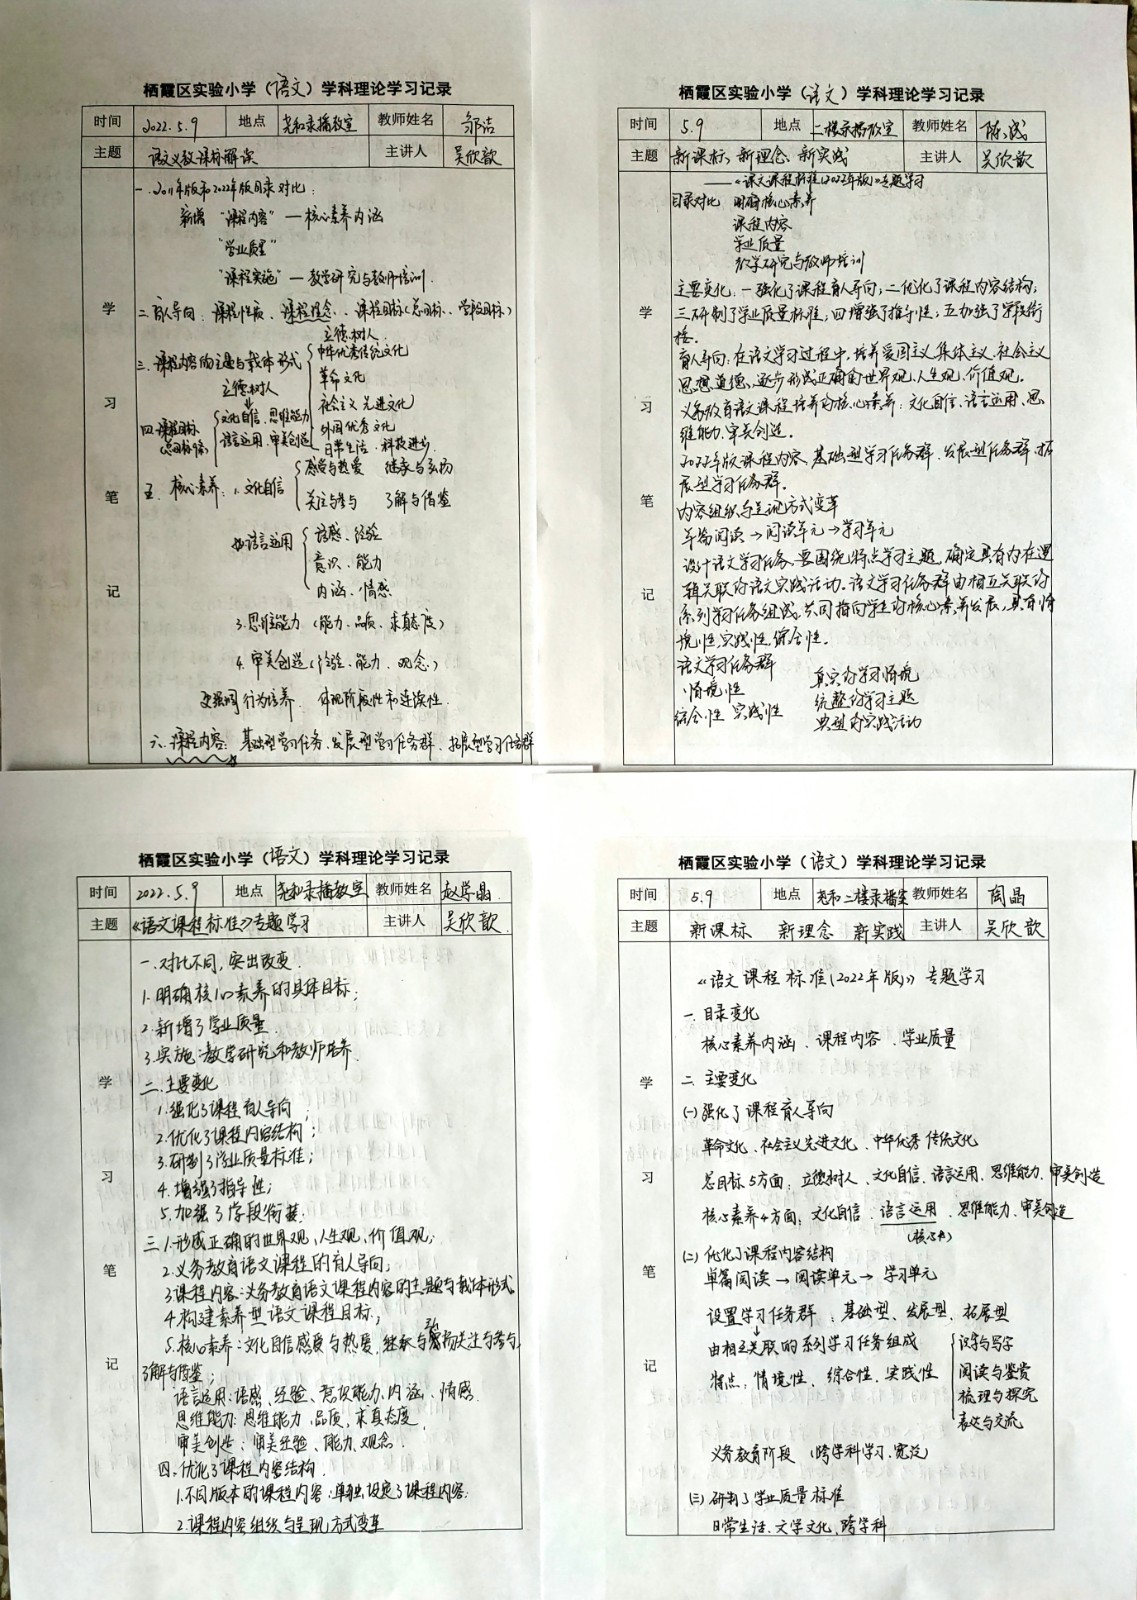 栖霞区实验小学（语文）学科理论学习记录
时间 2022.5.9 地点 尧和录播教室 教师姓名 邹洁
主题 语文义教课标解读 主讲人 吴欣歆
学习笔记
一.2011年版和2022年版目录对比：
新增 “课程内容” — 核心素养内涵
“学业质量”
“课程实施” — 教学研究与教师培训.
二.育人导向：课程性质、课程理念、课程目标(总目标、学段目标)
立德树人.
三.课程内容的主题与载体形式
中华优秀传统文化
革命文化
社会主义先进文化
外国优秀文化
日常生活、科技进步.
立德树人
四.课程目标
(总目标5条)
文化自信、思维能力
语言运用、审美创造
五. 核心素养：1.文化自信
感受与热爱 继承与弘扬
关注与参与 了解与借鉴
2.语言运用
语感、经验
意识、能力
内涵、情感
3.思维能力（能力、品质、求真态度）
4.审美创造（经验、能力、观念）
更强调行为培养. 体现阶段性和连续性.
六.课程内容：基础型学习任务、发展型学习任务群、拓展型学习任务群
栖霞区实验小学（语文）学科理论学习记录
时间 5.9 地点 二楼录播教室 教师姓名 陈
主题 新课标、新理念、新实践 主讲人 吴欣歆
学习笔记
——《课文课程标准(2022年版)》专题学习
目录对比 明确核心素养
课程内容
学业质量
教学研究与教师培训
主要变化：一强化了课程育人导向；二优化了课程内容结构；
三研制了学业质量标准；四增强了指导性；五加强了学段衔
接.
育人导向：在语文学习过程中，培养爱国主义、集体主义、社会主义
思想道德，逐步形成正确的世界观、人生观、价值观。
义务教育语文课程培养的核心素养：文化自信、语言运用、思
维能力、审美创造。
2022年版课程内容、基础型学习任务群、发展型任务群、拓
展型学习任务群.
内容组织与呈现方式变革
单篇阅读→阅读单元→学习单元
设计语文学习任务，要围绕特点学习主题，确定具有内在逻
辑关联的语文实践活动。语文学习任务群由相互关联的
系列学习任务组成，共同指向学生的核心素养发展，具有情
境性、实践性、综合性。
语文学习任务群 真实的学习情境
情境性 统整的学习主题
综合性 实践性 典型的实践活动
栖霞区实验小学（语文）学科理论学习记录
时间 2022.5.9 地点 尧和录播教室 教师姓名 赵学晶
主题 《语文课程标准》专题学习 主讲人 吴欣歆
学习笔记
一.对比不同，突出改变.
1.明确核心素养的具体目标；
2.新增了学业质量.
3.实施：教学研究和教师培养.
二.主要变化
1.强化了课程育人导向；
2.优化了课程内容结构；
3.研制了学业质量标准；
4.增强了指导性；
5.加强了学段衔接.
三.1.形成正确的世界观、人生观、价值观；
2.义务教育语文课程的育人导向；
3.课程内容：义务教育语文课程内容的主题与载体形式
4.构建素养型语文课程目标；
5.核心素养：文化自信感受与热爱，继承与弘扬关注与参与，
了解与借鉴；
语言运用：语感、经验、意识能力、内涵、情感.
思维能力：思维能力、品质，求真态度.
审美创造：审美经验、能力、观念.
四.优化了课程内容结构.
1.不同版本的课程内容：单独设定了课程内容.
2.课程内容组织与呈现方式变革
栖霞区实验小学（语文）学科理论学习记录
时间 5.9 地点 尧和二楼录播室 教师姓名 陶晶
主题 新课标 新理念 新实践 主讲人 吴欣歆
学习笔记
《语文课程标准(2022年版)》专题学习
一.目录变化
核心素养内涵、课程内容、学业质量
二.主要变化
(一)强化了课程育人导向
革命文化、社会主义先进文化、中华优秀传统文化
总目标5方面：立德树人、文化自信、语言运用、思维能力、审美创造
核心素养4方面：文化自信、语言运用、思维能力、审美创造
(核心点)
(二)优化了课程内容结构
单篇阅读→阅读单元→学习单元
设置学习任务群：基础型、发展型、拓展型
由相互关联的系列学习任务组成
特点：情境性、综合性、实践性
识字与写字
阅读与鉴赏
梳理与探究
表达与交流
义务教育阶段（跨学科学习，宽泛）
(三)研制了学业质量标准
日常生活、文学文化、跨学科